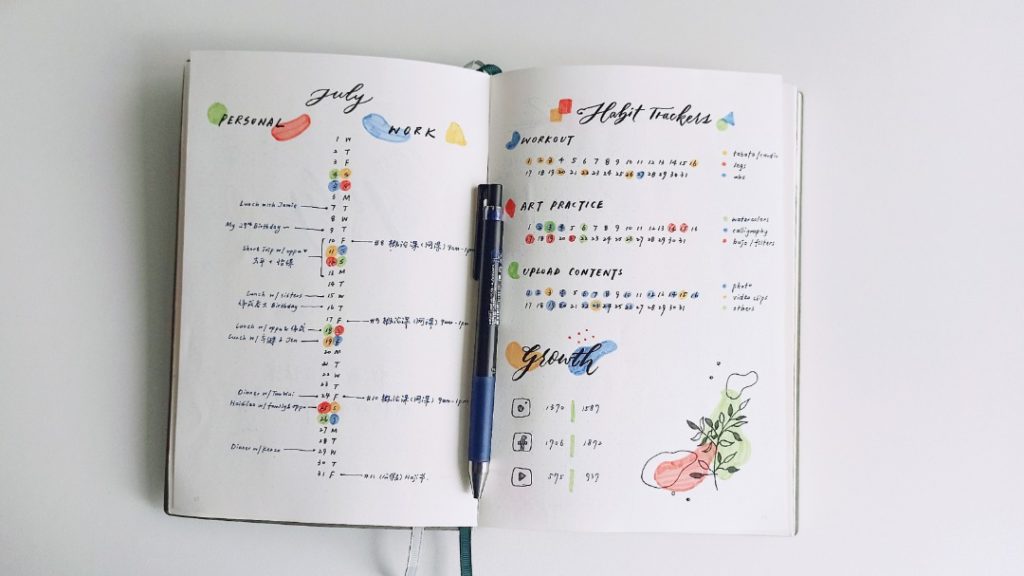 July
PERSONAL WORK
1 W
2 T
3 F
4 S
5 S
6 M
Lunch with Jamie 7 T
8 W
My 29th Birthday 9 T
10 F #8 9am-1pm
11 S
12 S
13 M
14 T
Lunch w/ sisters 15 W
Birthday 16 T
17 F #9 9am-1pm
Lunch w/ oppa & 18 S
Lunch w/ & Jen 19 S
20 M
21 T
22 W
23 T
Dinner w/ 24 F #10 9am-1pm
w/ family & oppa 25 S
26 S
27 M
28 T
Dinner w/ 29 W
30 T
31 F #11
Habit Trackers
WORKOUT
1 2 3 4 5 6 7 8 9 10 11 12 13 14 15 16
17 18 19 20 21 22 23 24 25 26 27 28 29 30 31
tabata/cardio
legs
abs
ART PRACTICE
1 2 3 4 5 6 7 8 9 10 11 12 13 14 15 16
17 18 19 20 21 22 23 24 25 26 27 28 29 30 31
watercolors
calligraphy
bujo/fillers
UPLOAD CONTENTS
1 2 3 4 5 6 7 8 9 10 11 12 13 14 15 16
17 18 19 20 21 22 23 24 25 26 27 28 29 30 31
photo
video clips
others
Growth
1370 1587
1706 1892
575 737